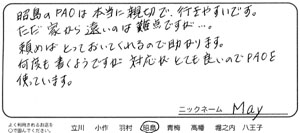 昭島のPAOは本当に親切で、行きやすいです。
ただ家から遠いのは難点ですが…。
頼めばとっておいてくれるので助かります。
何度も書くようですが対応がとても良いのでPAOを
使っています。
ニックネーム May
よく利用されるお店を
○で囲んでください。 立川 小作 羽村 昭島 青梅 高幡 堀之内 八王子